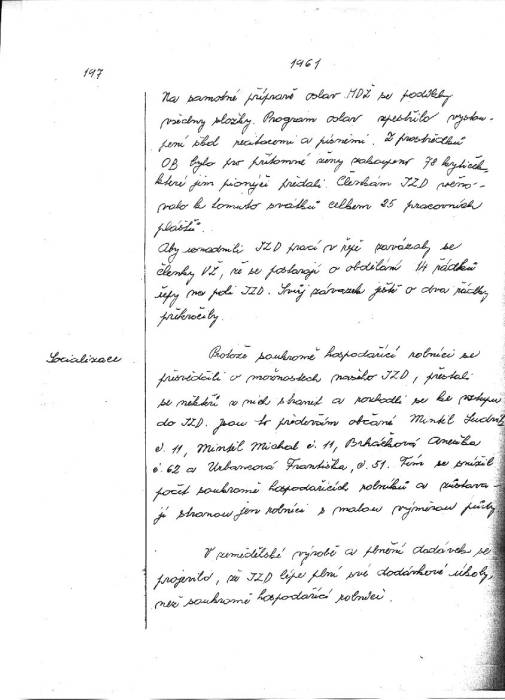 197
1961
Na samotné přípravě oslav MDŽ se podílely
všechny složky. Program oslav zpestřilo vystou-
pení škol recitacemi a písněmi. Z prostředků
OB bylo pro přítomné ženy zakoupeno 70 kytiček,
které jim pionýři předali. Členkám JZD věno-
valo k tomuto svátku celkem 25 pracovních
plášťů.
Aby usnadnili JZD práci v řepě zavázaly se
členky VŽ, že se postarají o obdělání 14 řádků
řepy na poli JZD. Svůj závazek ještě o dva řádky
překročily.
Socializace.
Protože soukromě hospodařící rolníci se
přesvědčili o možnostech našeho JZD, přestali
se někteří z nich stranit a rozhodli se ke vstupu
do JZD. Jsou to především občané Mintěl
č. 11, Mintěl Michal č. 11, Brháčková Anežka
č. 62 a Urbancová Františka, č. 51. Tím se snížil
počet soukromě hospodařících rolníků a zůstáva-
jí stranou jen rolníci s malou výměrou půdy.
V zemědělské výrobě a plnění dodávek se
projevilo, že JZD lépe plní své dodávkové úkoly,
než soukromě hospodařící rolníci.